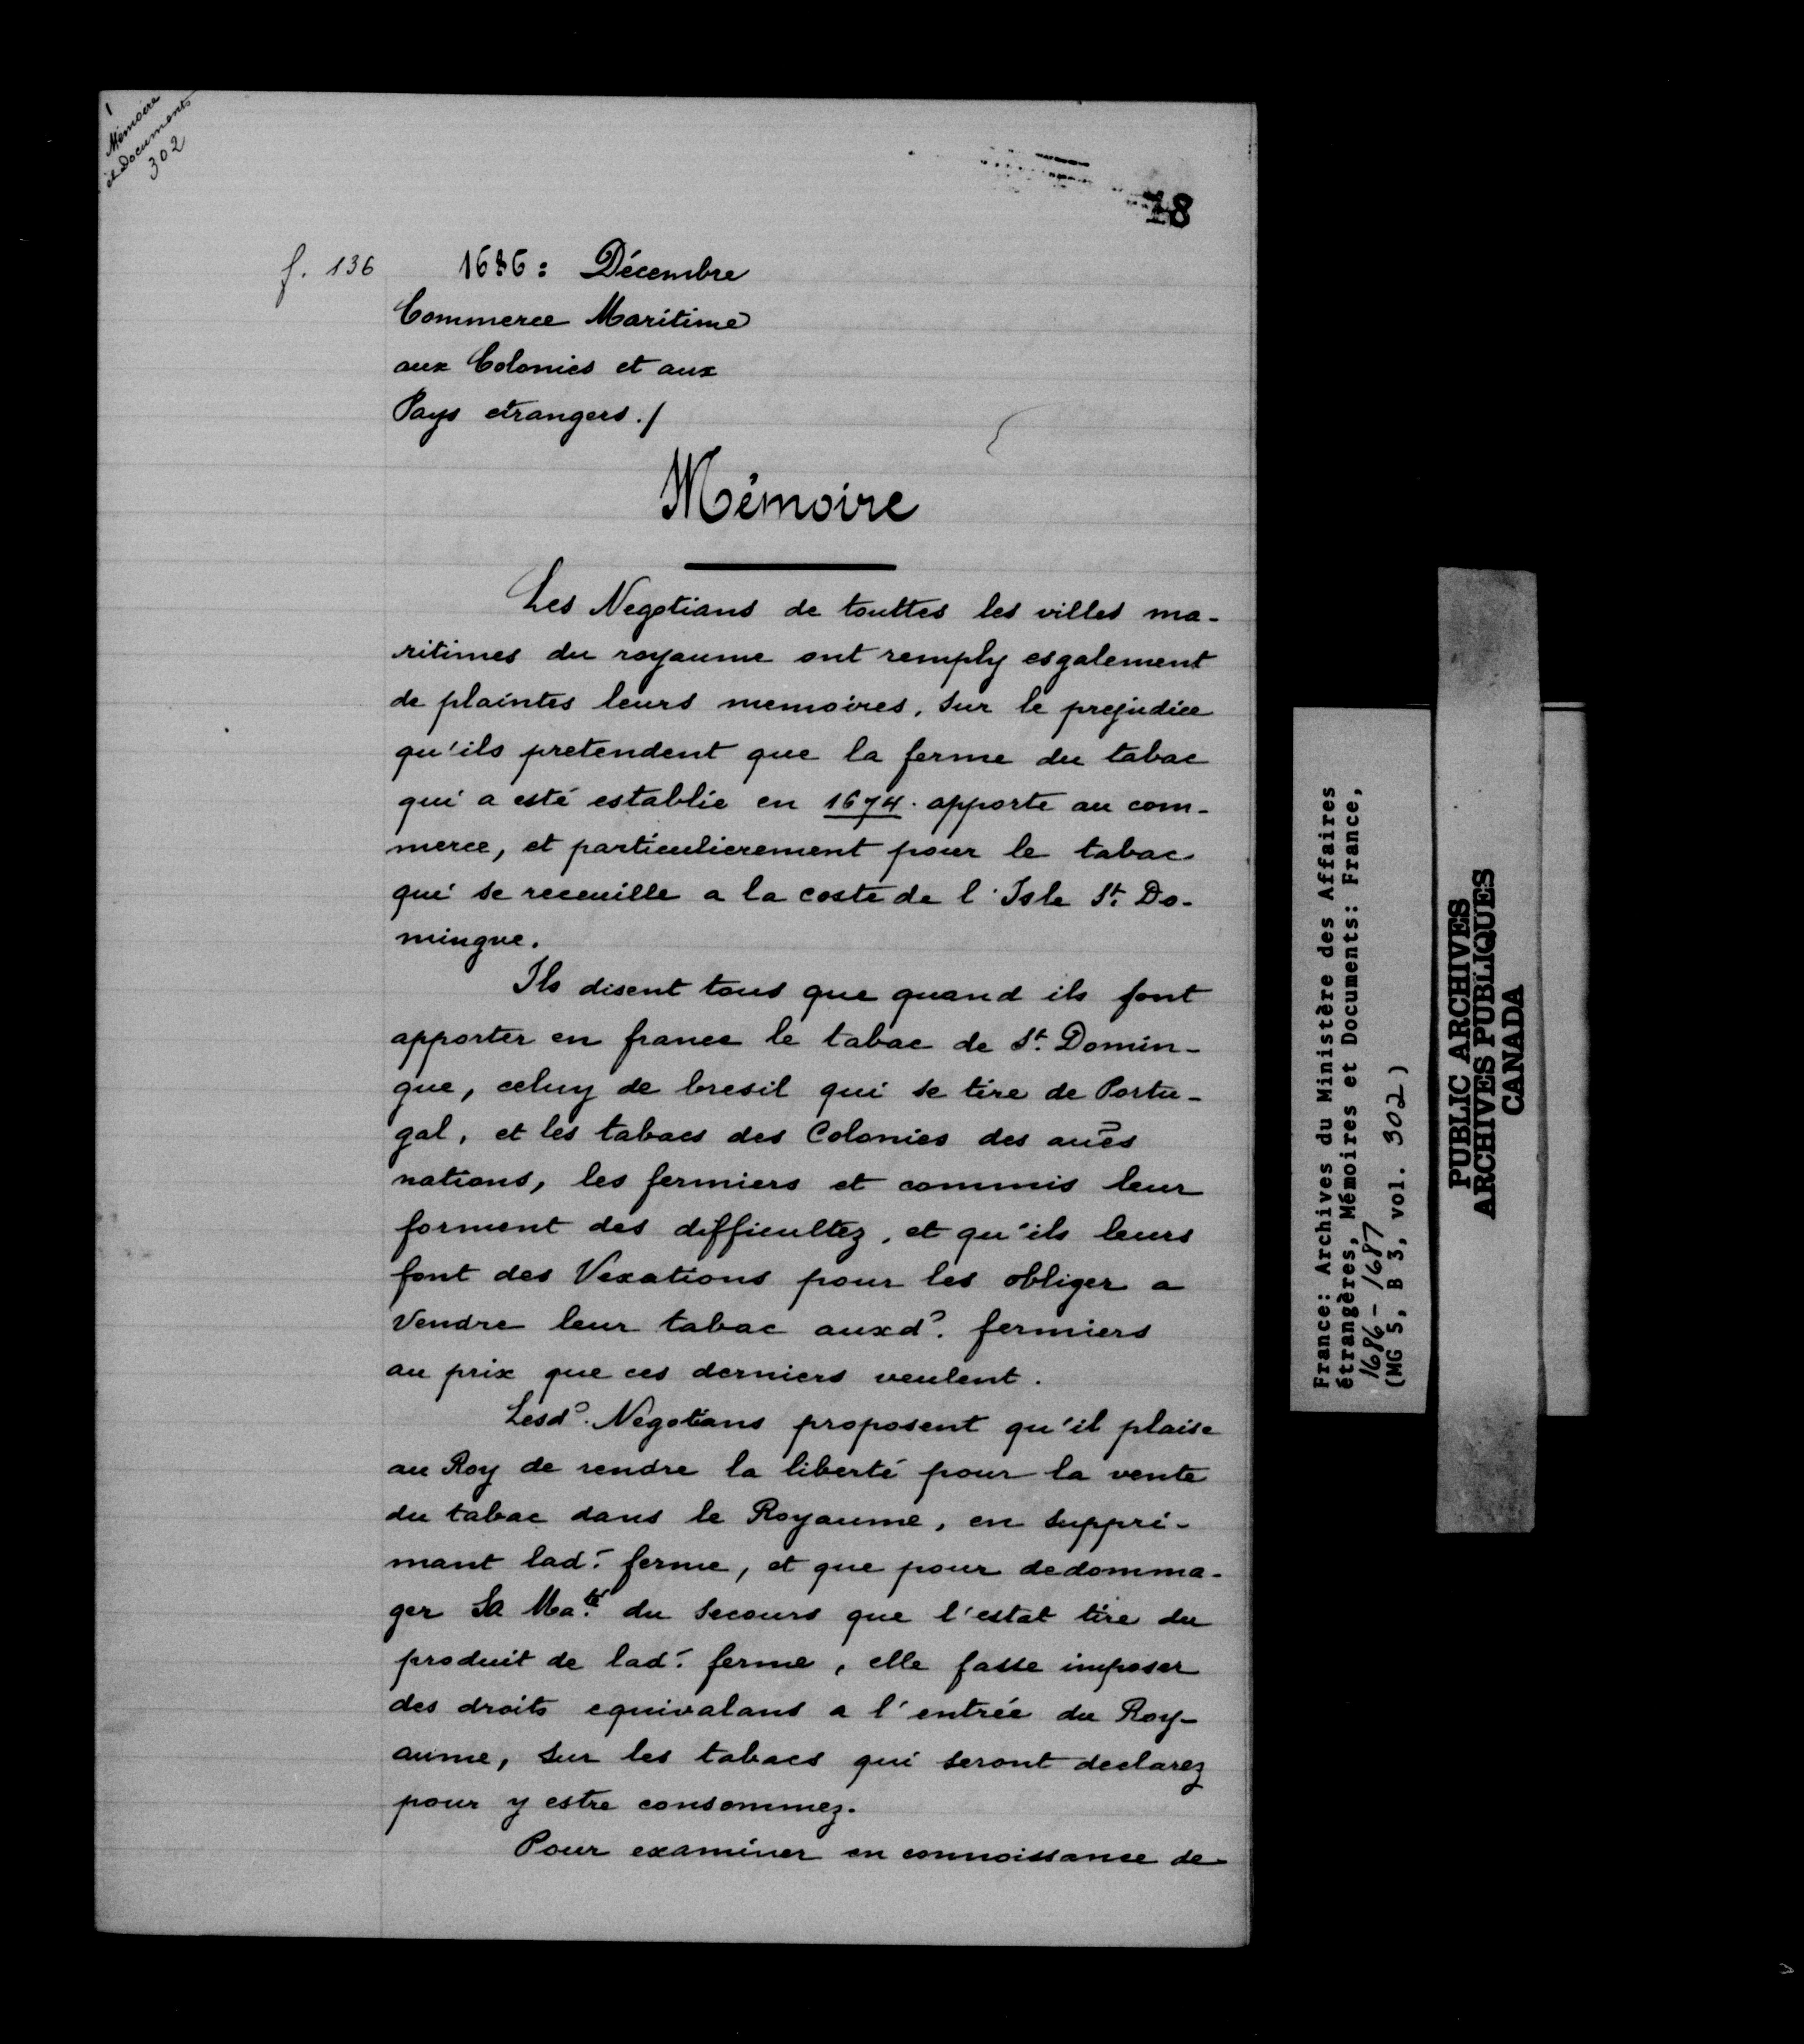 1
Mémoire
et Documents
302
78
f. 136
1686 : Décembre
Commerce Maritime
aux Colonies et aux
Pays etrangers ./
Mémoire
Les Negotians de touttes les villes ma-
ritimes du royaume ont remply esgalement
de plaintes leurs memoires, sur le prejudice
qu'ils pretendent que la ferme du tabac
qui a esté establie en 1674. apporte au com-
merce, et particulierement pour le tabac
qui se recueille a la coste de l'Isle St. Do-
mingue.
Ils disent tous que quand ils font
apporter en france le tabac de St. Domin-
gue, celuy de bresil qui se tire de Portu-
gal, et les tabacs des Colonies des au͠es
nations, les fermiers et commis leur
forment des difficultez, et qu'ils leurs
font des Vexations pour les obliger a
Vendre leur tabac auxd?. fermiers
au prix que ces derniers veulent.
Lesd?. Negotians proposent qu'il plaise
au Roy de rendre la liberté pour la vente
du tabac dans le Royaume, en suppri-
mant lad. ferme, et que pour dedomma-
ger Sa Ma.té du secours que l'estat tire du
produit de lad. ferme, elle fasse imposer
des droits equivalans a l'entrée du Roy-
aume, sur les tabacs qui seront declarez
pour y estre consommez.
Pour examiner en connoissance de
France: Archives du Ministère des Affaires
étrangères, Mémoires et Documents: France,
1686-1687
(MG 5, B 3, vol. 302)
PUBLIC ARCHIVES
ARCHIVES PUBLIQUES
CANADA